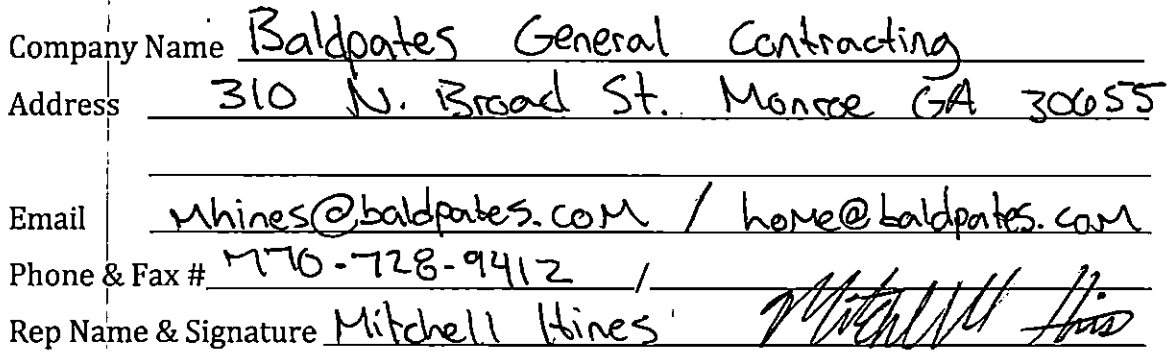 Company Name Baldpates General Contracting
Address 310 N. Broad St. Monroe GA 30655
Email mhines@baldpates.com / home@baldpates.com
Phone & Fax # 770-728-9412 /
Rep Name & Signature Mitchell Hines Mitchell Hines